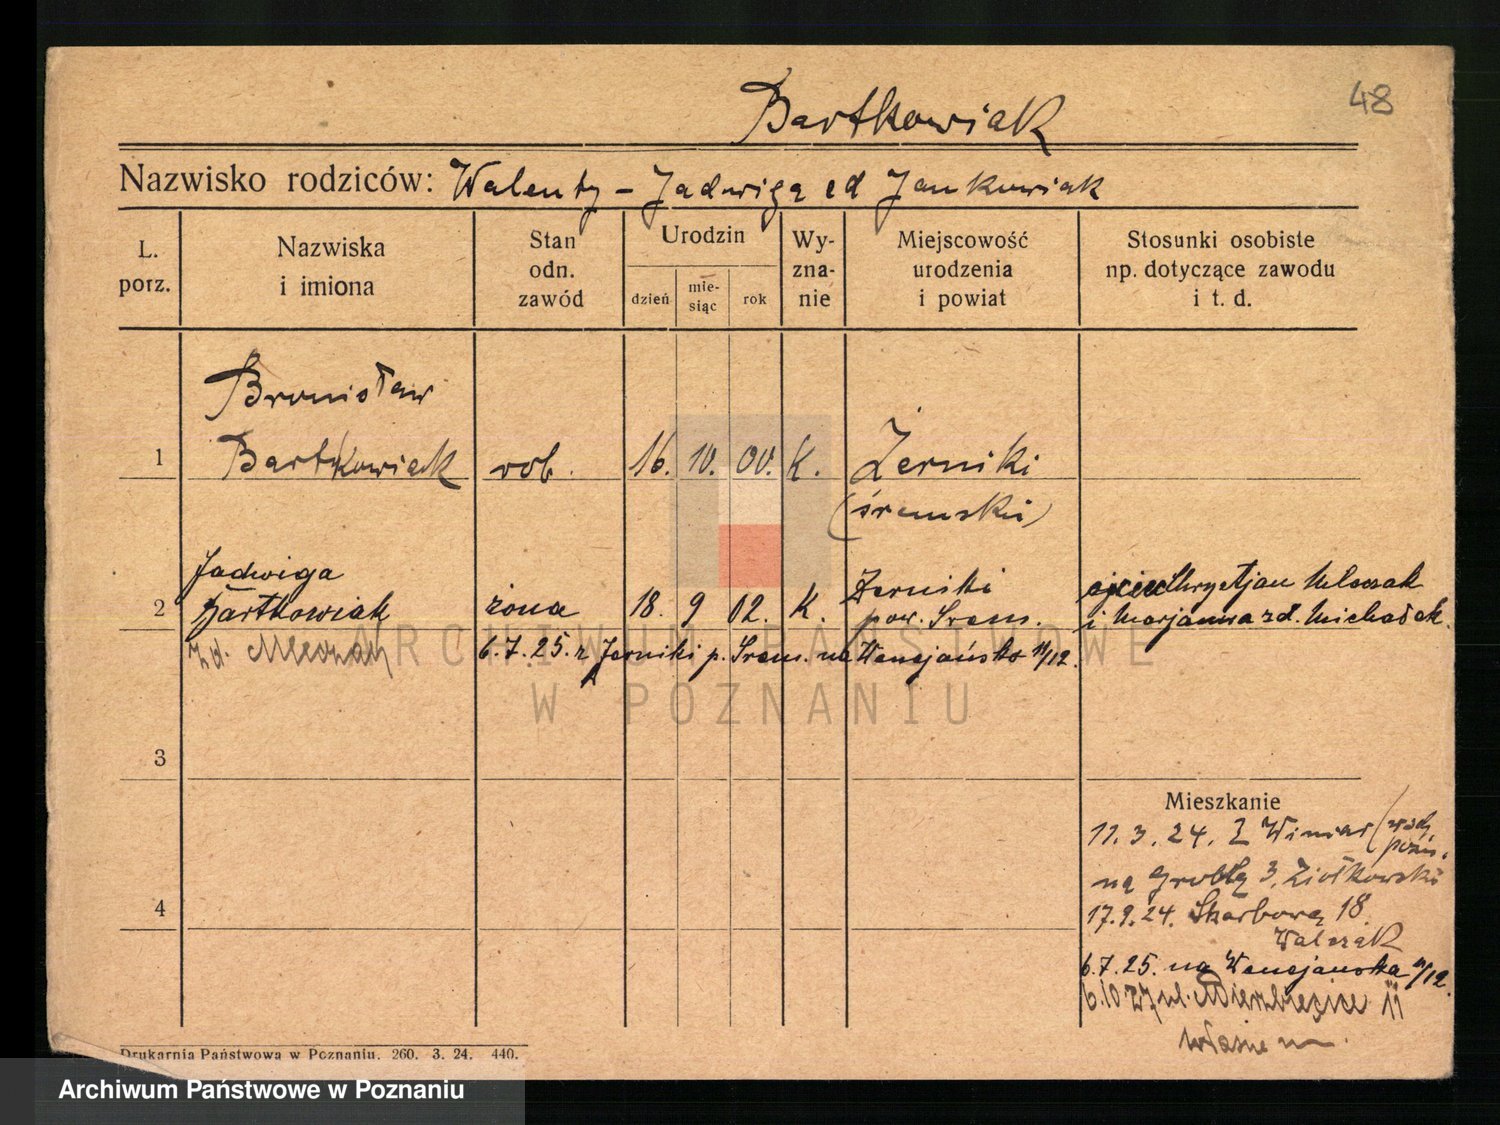 Bartkowiak
48
Nazwisko rodziców: Walenty - Jadwiga zd Jankowiak
L. porz.
Nazwiska i imiona
Stan odn. zawód
Urodzin
dzień
mie-
siąc
rok
Wy-
zna-
nie
Miejscowość urodzenia i powiat
Stosunki osobiste np. dotyczące zawodu i t. d.
Bronisław
1 Bartkowiak rob. 16. 10. 00. K. Żerniki
(śremski)
Jadwiga
2 Bartkowiak żona 18. 9 02. K. Żerniki
pow. Śrem.
i Marjanna zd. Michałak
zd.
6.7.25. z Żerniki p. Śrem. na Wenejańsko 11/12.
ARCHIWUM PAŃSTWOWE
W POZNANIU
3
Mieszkanie
11.3.24. Z Winiar
na Groblę 3, Ziółkowski
4
17.9.24. Skarbowa 18
Walczak
6.7.25. na Wenejańska 11/12
6.10.27 ul.
własne m.
Drukarnia Państwowa w Poznaniu. 260. 3. 24. 440.
Archiwum Państwowe w Poznaniu